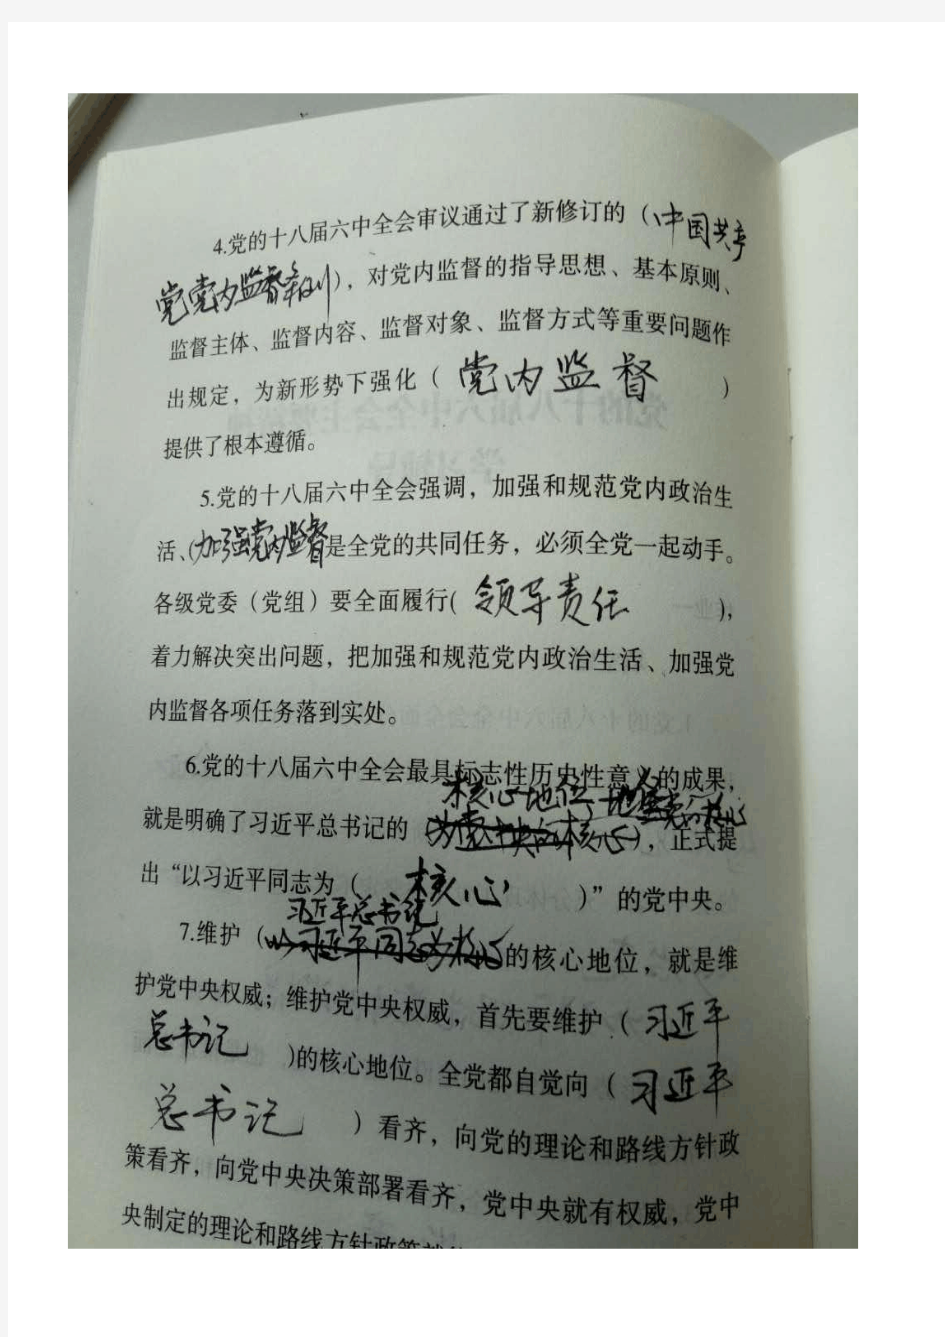 4.党的十八届六中全会审议通过了新修订的（中国共产
党党内监督条例），对党内监督的指导思想、基本原则、
监督主体、监督内容、监督对象、监督方式等重要问题作
出规定，为新形势下强化（党内监督）
提供了根本遵循。
5.党的十八届六中全会强调，加强和规范党内政治生
活、（加强党内监督是全党的共同任务，必须全党一起动手。
各级党委（党组）要全面履行(领导责任)，
着力解决突出问题，把加强和规范党内政治生活、加强党
内监督各项任务落到实处。
6.党的十八届六中全会最具标志性历史性意义的成果，
核心地位
就是明确了习近平总书记的（核心），正式提
出“以习近平同志为（核心）”的党中央。
习近平总书记
7.维护（以习近平同志为核心的核心地位，就是维
护党中央权威；维护党中央权威，首先要维护（习近平
总书记)的核心地位。全党都自觉向（习近平
总书记）看齐，向党的理论和路线方针政
策看齐，向党中央决策部署看齐，党中央就有权威，党中
央制定的理论和路线方针政策就